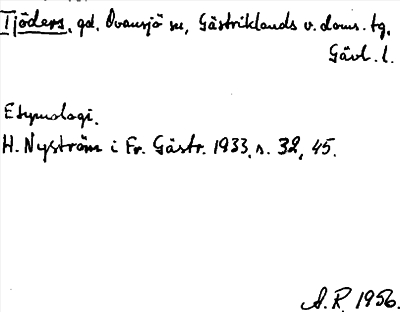 Tjöders, gd, Ovansjö sn, Gästriklands v. doms. tg,
Gävl. l.
Etymologi.
H. Nyström i Fr. Gästr. 1933, s. 32, 45.
A. R. 1956.